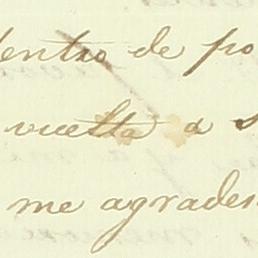 dentro de po
vuelta a s
me agrades